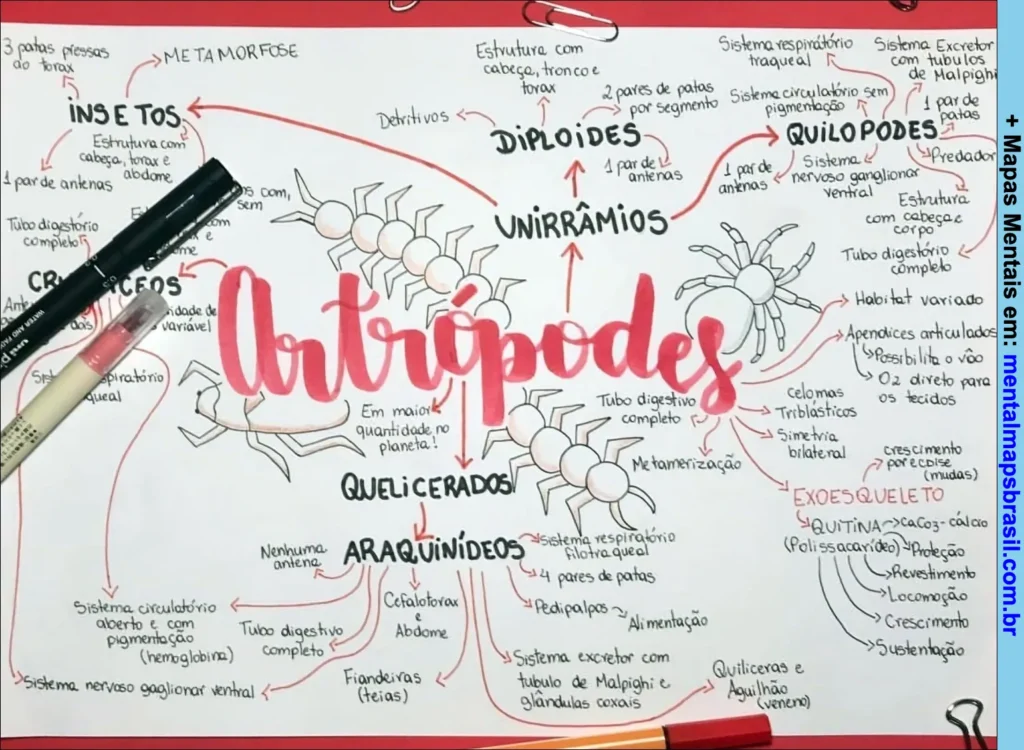 3 patas pressas
ao torax
METAMORFOSE
INSETOS
Estrutura com
cabeça, torax e
abdome
1 par de antenas
Tubo digestório
completo
com,
sem
Estrutura com
cabeça, tronco e
torax
Detritivos
2 pares de patas
por segmento
DIPLOIDES
1 par de
antenas
UNIRRÂMIOS
Sistema respiratório
traqueal
Sistema Excretor
com tubulos
de Malpighi
Sistema circulatório sem
pigmentação
1 par de
patas
QUILOPODES
Predador
1 par de
antenas
Sistema
nervoso ganglionar
ventral
Estrutura
com cabeça e
corpo
Tubo digestório
completo
Artrópodes
Em maior
quantidade no
planeta!
Habitat variado
Apendices articulados
Possibilita o vôo
O2 direto para
os tecidos
Tubo digestivo
completo
Celomas
Triblásticos
Simetria
bilateral
Metamerização
crescimento
por ecdise
(mudas)
EXOESQUELETO
QUITINA
(Polissacarídeo)
CaCO3-cálcio
Proteção
Revestimento
Locomoção
Crescimento
Sustentação
QUELICERADOS
ARAQUINÍDEOS
Nenhuma
antena
Sistema respiratório
filotraqueal
4 pares de patas
Pedipalpos
Alimentação
Cefalotorax
e
Abdome
Sistema circulatório
aberto e com
pigmentação
(hemoglobina)
Tubo digestivo
completo
Sistema nervoso gaglionar ventral
Fiandeiras
(teias)
Sistema excretor com
tubulo de Malpighi e
glândulas coxais
Quiliceras e
Aguilhão
(veneno)
+ Mapas Mentais em: mentalmapsbrasil.com.br